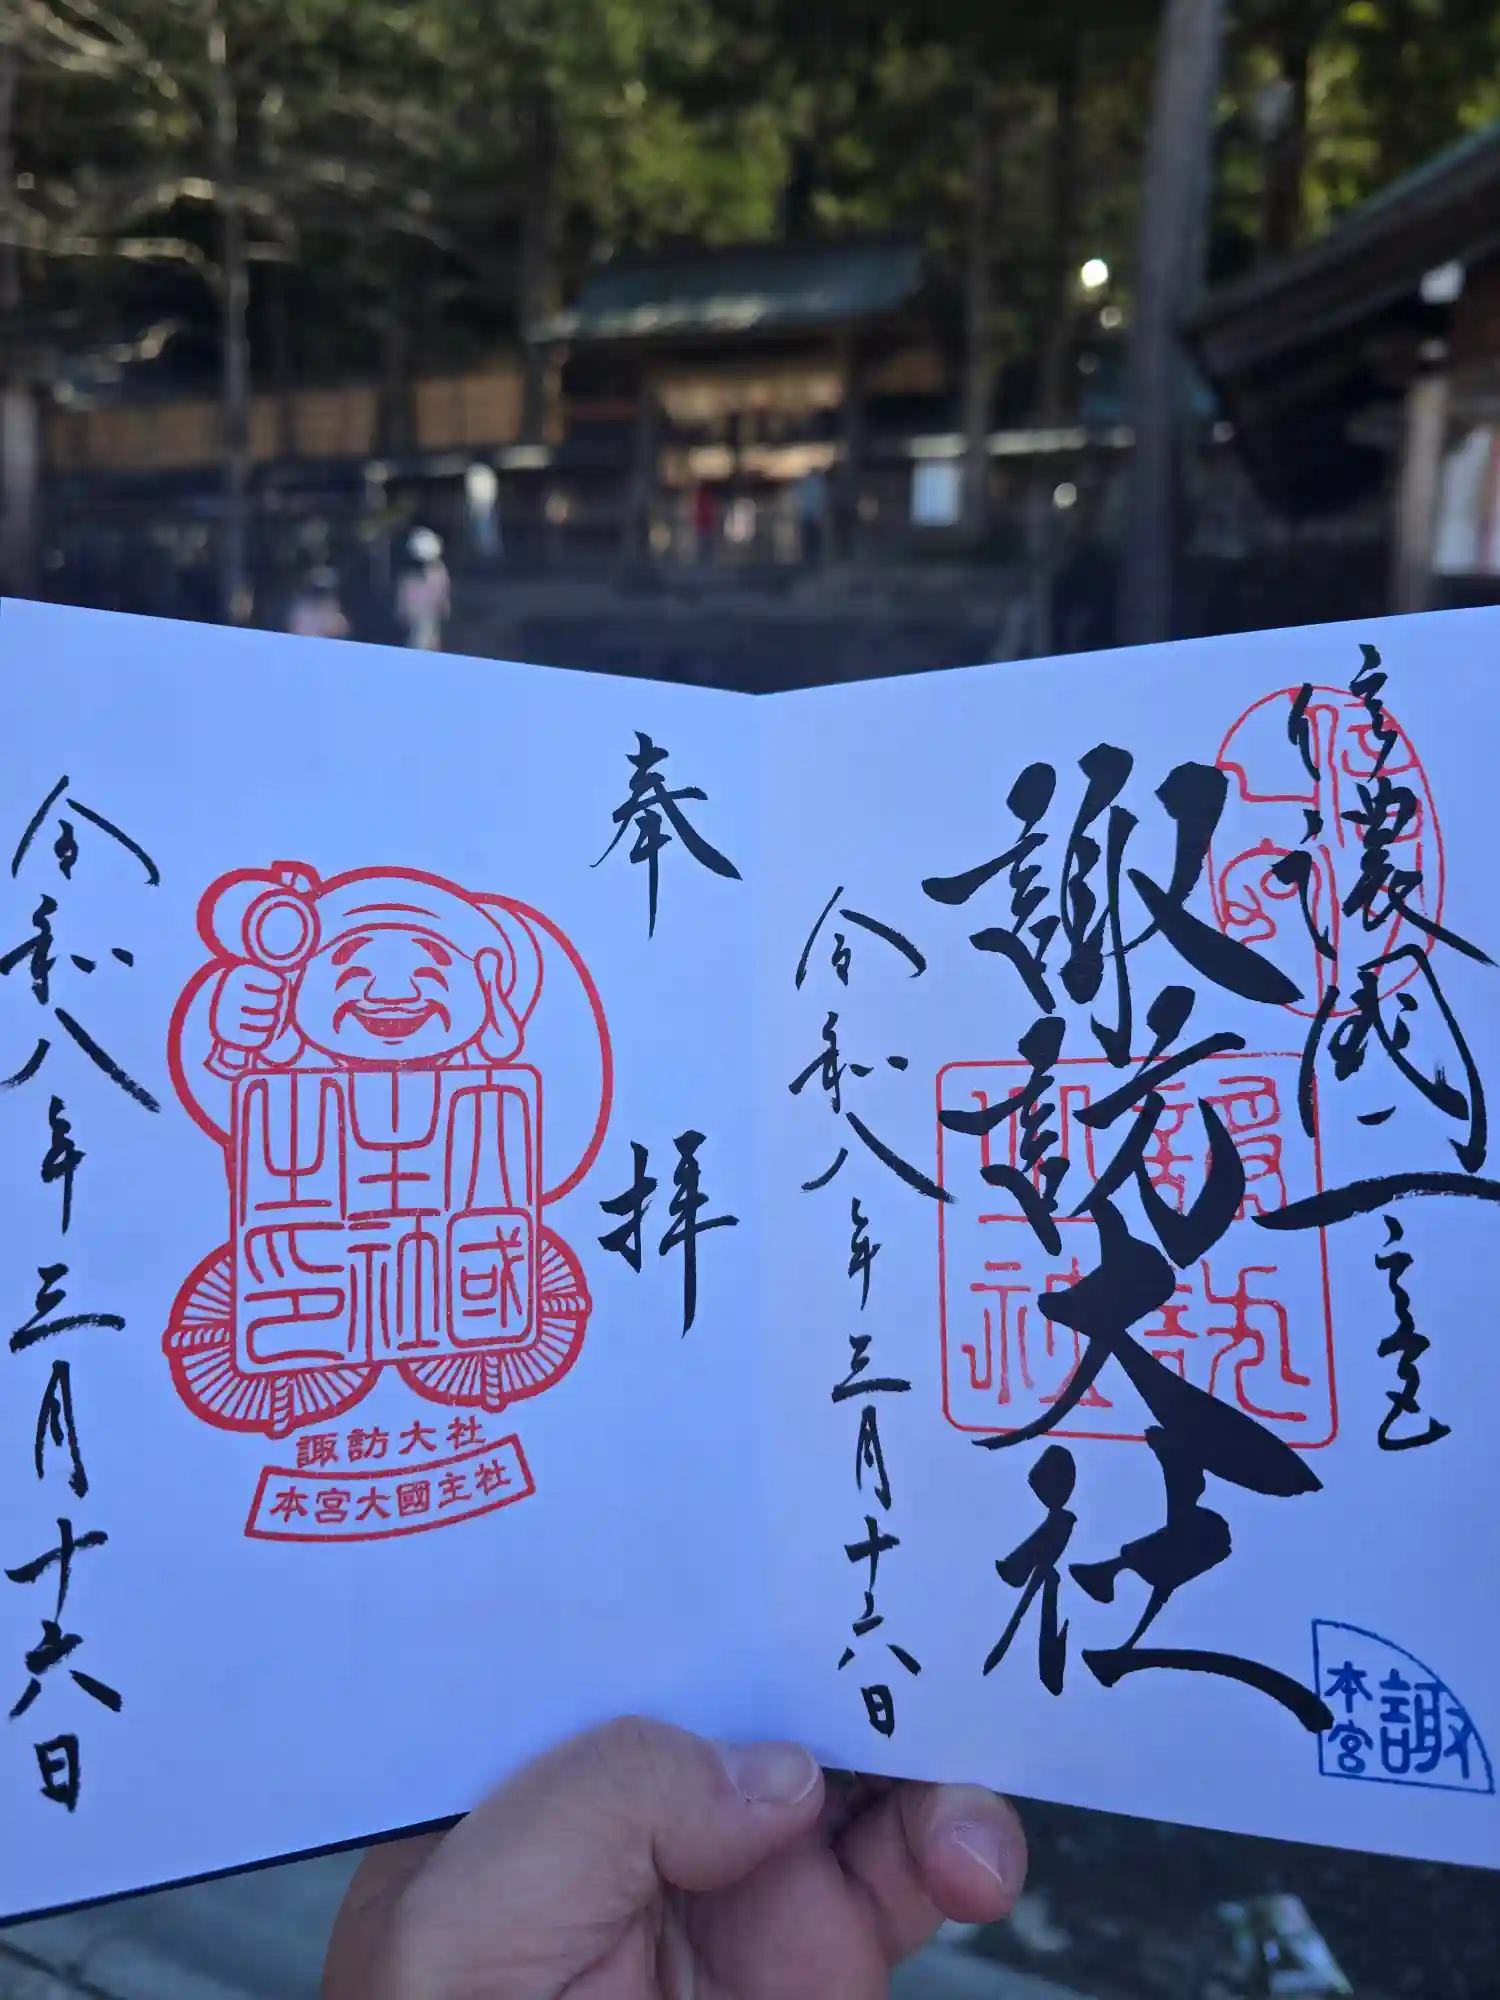 信濃國一之宮
諏訪大社
令和八年三月十六日
諏
本宮
奉拝
大國
主社
之印
諏訪大社
本宮大國主社
令和八年三月十六日